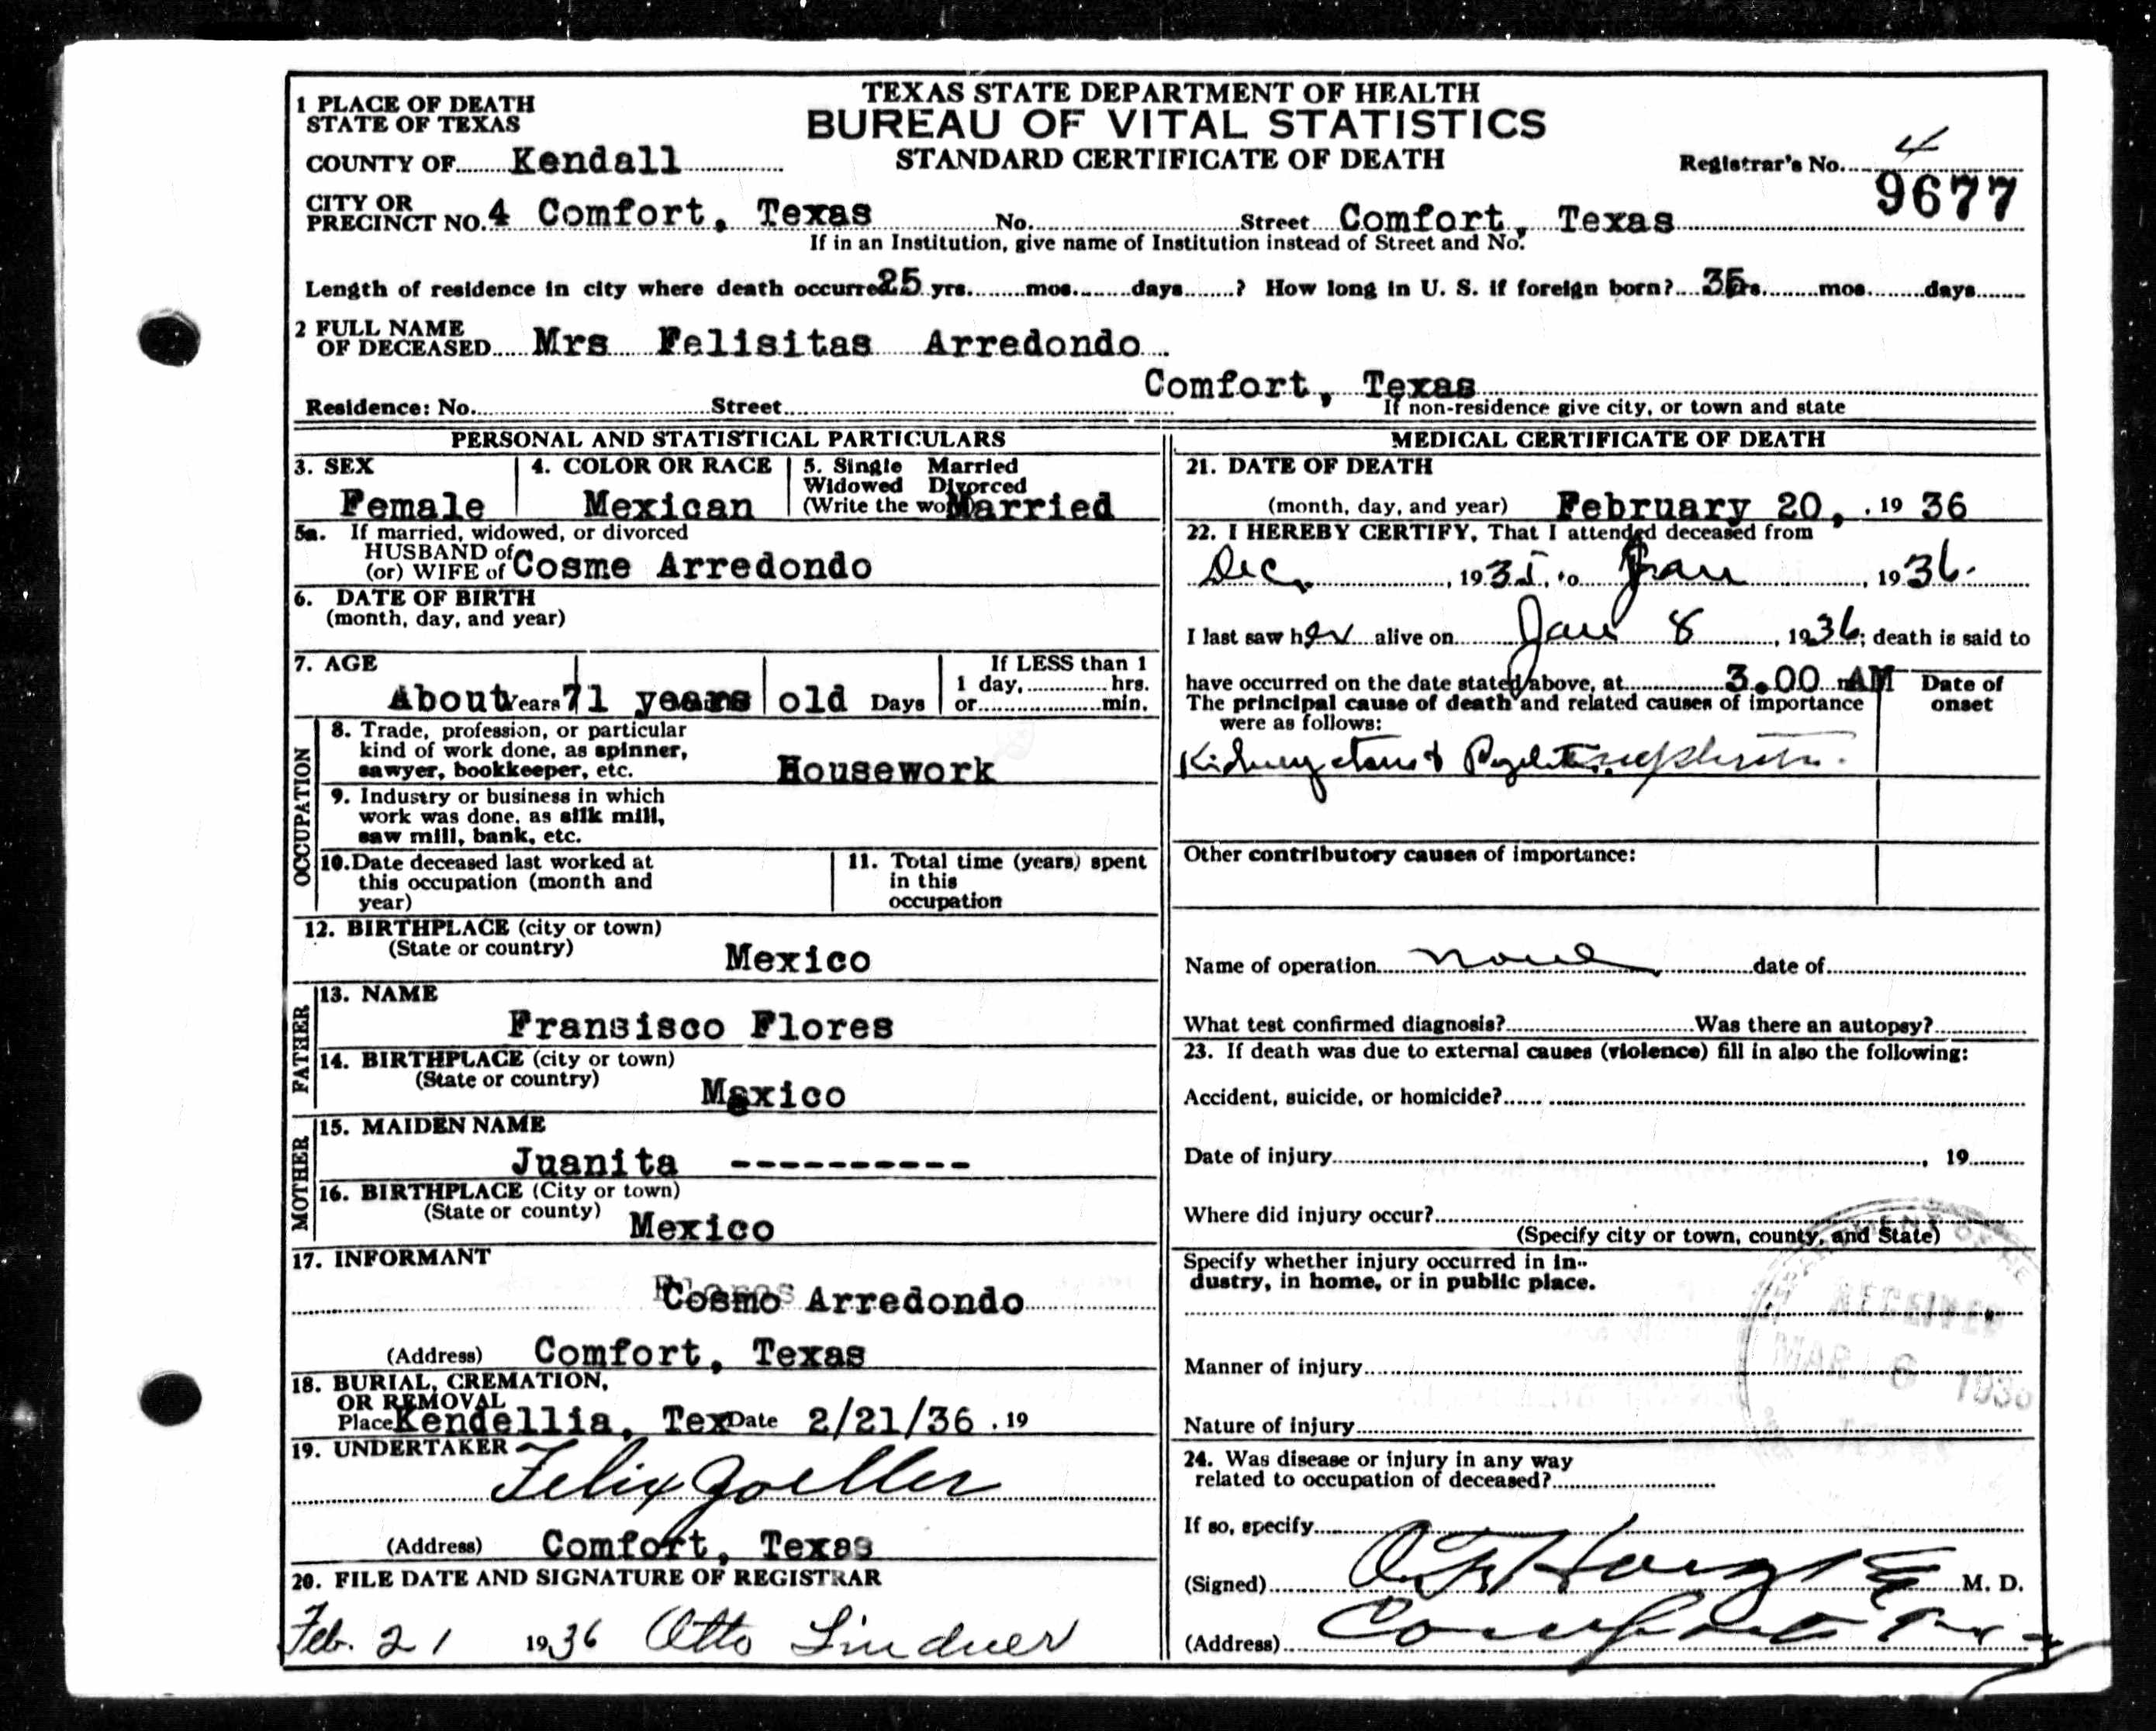 TEXAS STATE DEPARTMENT OF HEALTH
BUREAU OF VITAL STATISTICS
STANDARD CERTIFICATE OF DEATH
1 PLACE OF DEATH
STATE OF TEXAS
COUNTY OF Kendall
Registrar's No. 4
9677
CITY OR
PRECINCT NO. 4 Comfort, Texas No. Street Comfort, Texas
If in an Institution, give name of Institution instead of Street and No.
Length of residence in city where death occurred 25 yrs. mos. days ? How long in U. S. if foreign born? 35 yrs. mos. days
2 FULL NAME
OF DECEASED Mrs Felisitas Arredondo
Comfort, Texas
Residence: No. Street If non-residence give city, or town and state
PERSONAL AND STATISTICAL PARTICULARS
3. SEX
Female
4. COLOR OR RACE
Mexican
5. Single Married
Widowed Divorced
(Write the wo Married
5a. If married, widowed, or divorced
HUSBAND of
(or) WIFE of Cosme Arredondo
6. DATE OF BIRTH
(month, day, and year)
7. AGE
About Years 71 years old Days
If LESS than 1
1 day, hrs.
or min.
OCCUPATION
8. Trade, profession, or particular
kind of work done, as spinner,
sawyer, bookkeeper, etc. Housework
9. Industry or business in which
work was done, as silk mill,
saw mill, bank, etc.
10. Date deceased last worked at
this occupation (month and
year)
11. Total time (years) spent
in this
occupation
12. BIRTHPLACE (city or town)
(State or country) Mexico
FATHER
13. NAME
Fransisco Flores
14. BIRTHPLACE (city or town)
(State or country) Mexico
MOTHER
15. MAIDEN NAME
Juanita ----------
16. BIRTHPLACE (City or town)
(State or county) Mexico
17. INFORMANT
Cosmo Arredondo
(Address) Comfort, Texas
18. BURIAL, CREMATION,
OR REMOVAL
Place Kendellia, Tex Date 2/21/36 . 19
19. UNDERTAKER
Felix Zoeller
(Address) Comfort, Texas
20. FILE DATE AND SIGNATURE OF REGISTRAR
Feb. 21 1936 Otto Lindner
MEDICAL CERTIFICATE OF DEATH
21. DATE OF DEATH
(month, day, and year) February 20, . 19 36
22. I HEREBY CERTIFY, That I attended deceased from
Dec. , 1935, to Jan , 1936.
I last saw her alive on Jan 8 , 1936; death is said to
have occurred on the date stated above, at 3.00 m AM
Date of
onset
The principal cause of death and related causes of importance
were as follows:
Kidney &
Other contributory causes of importance:
Name of operation none date of
What test confirmed diagnosis? Was there an autopsy?
23. If death was due to external causes (violence) fill in also the following:
Accident, suicide, or homicide?
Date of injury , 19
Where did injury occur?
(Specify city or town, county, and State)
Specify whether injury occurred in in-
dustry, in home, or in public place.
RECEIVED
MAR 6 1936
Manner of injury
Nature of injury
24. Was disease or injury in any way
related to occupation of deceased?
If so, specify
(Signed) M. D.
(Address) Comfort Tex